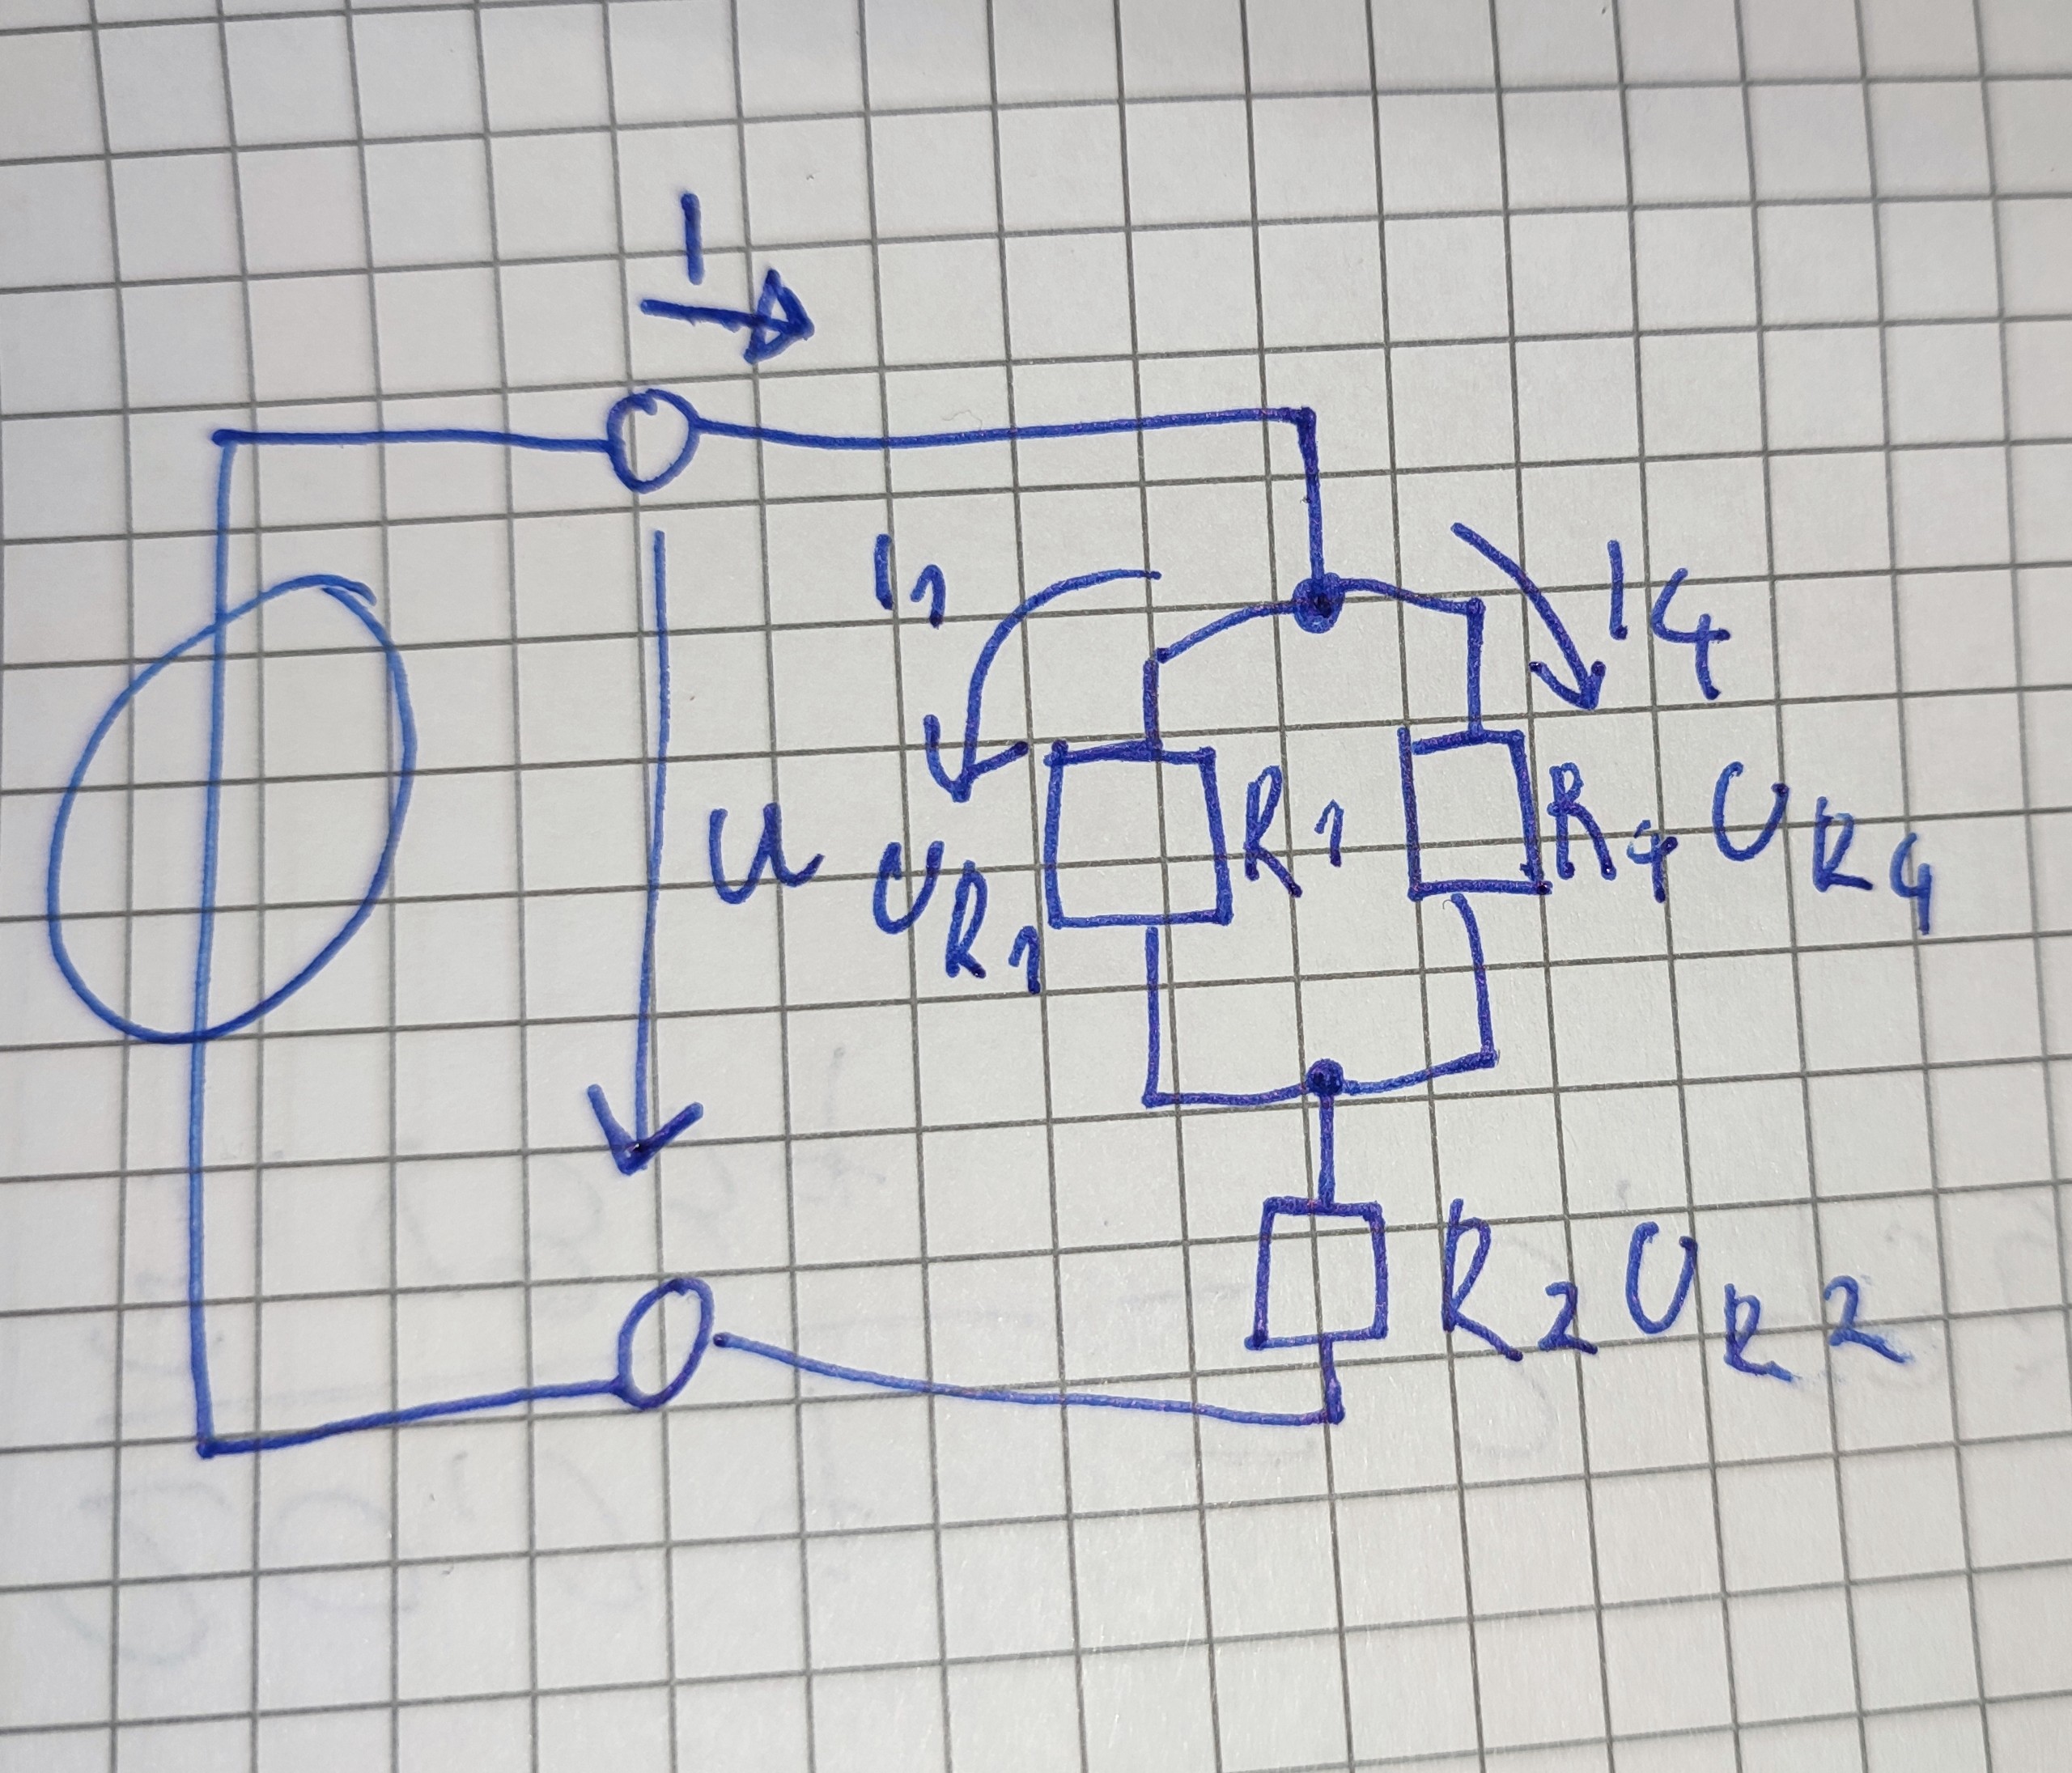 I
I1
I4
U
UR1
R1
R4 UR4
R2 UR2